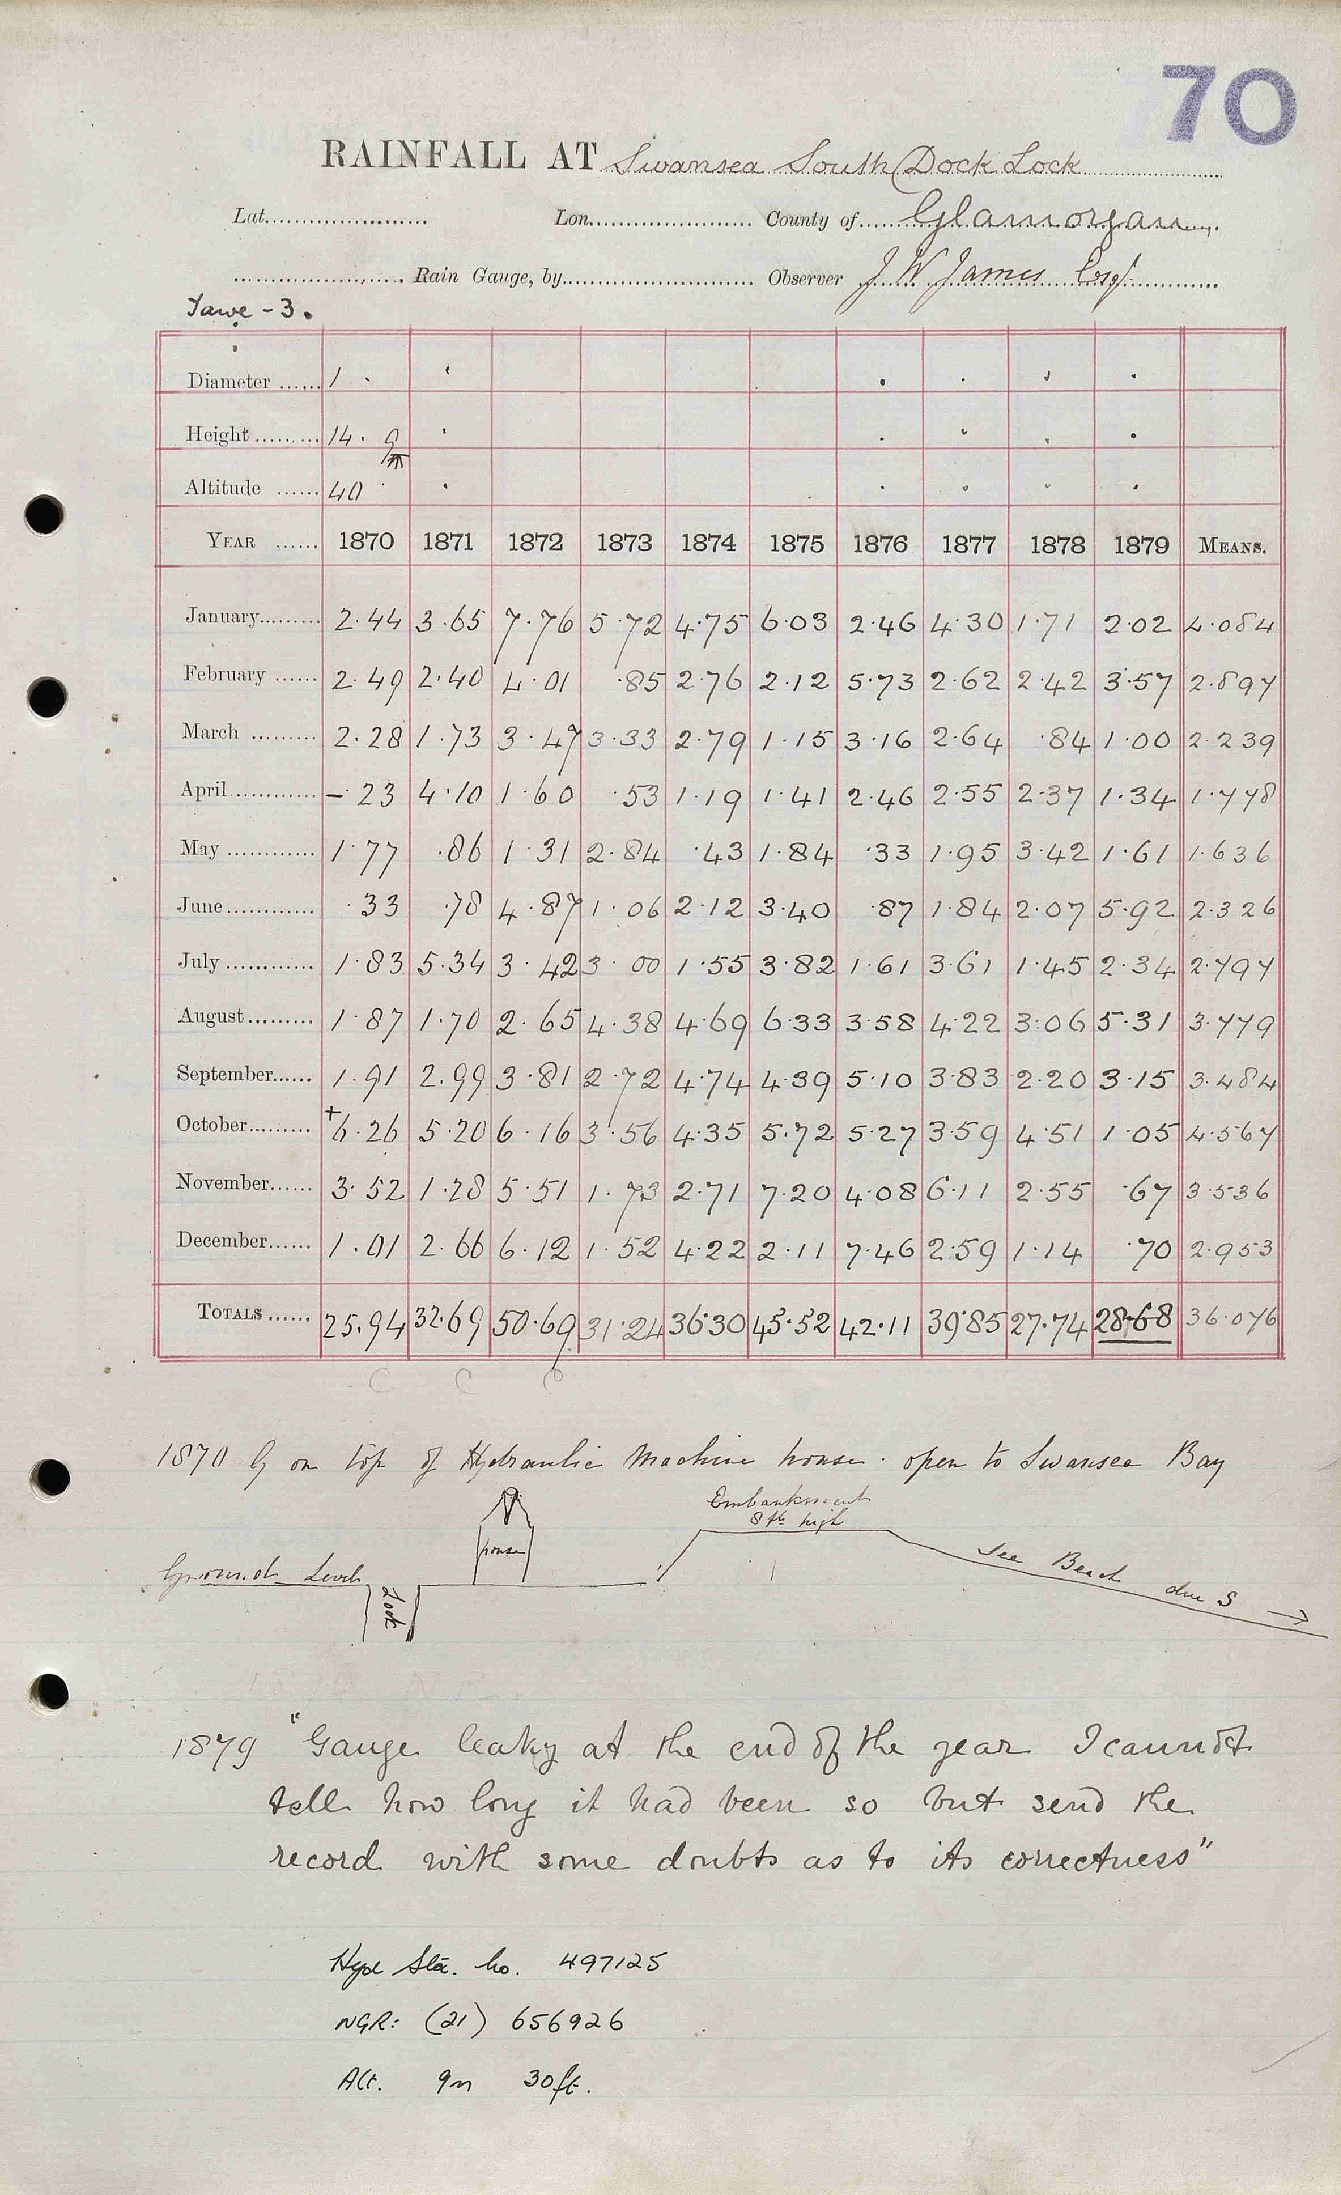 70
RAINFALL AT Swansea South Dock Lock
Lat. Lon. County of Glamorgan
Rain Gauge, by Observer J W James Esqr.
Tawe - 3.
Diameter 1
Height 14. 9
Altitude 40
YEAR 1870 1871 1872 1873 1874 1875 1876 1877 1878 1879 MEANS.
January 2.44 3.65 7.76 5.72 4.75 6.03 2.46 4.30 1.71 2.02 4.084
February 2.49 2.40 4.01 .85 2.76 2.12 5.73 2.62 2.42 3.57 2.897
March 2.28 1.73 3.47 3.33 2.79 1.15 3.16 2.64 .84 1.00 2.239
April -.23 4.10 1.60 .53 1.19 1.41 2.46 2.55 2.37 1.34 1.778
May 1.77 .86 1.31 2.84 .43 1.84 .33 1.95 3.42 1.61 1.636
June .33 .78 4.87 1.06 2.12 3.40 .87 1.84 2.07 5.92 2.326
July 1.83 5.34 3.42 3.00 1.55 3.82 1.61 3.61 1.45 2.34 2.797
August 1.87 1.70 2.65 4.38 4.69 6.33 3.58 4.22 3.06 5.31 3.779
September 1.91 2.99 3.81 2.72 4.74 4.39 5.10 3.83 2.20 3.15 3.484
October +6.26 5.20 6.16 3.56 4.35 5.72 5.27 3.59 4.51 1.05 4.567
November 3.52 1.28 5.51 1.73 2.71 7.20 4.08 6.11 2.55 .67 3.536
December 1.01 2.66 6.12 1.52 4.22 2.11 7.46 2.59 1.14 .70 2.953
TOTALS 25.94 32.69 50.69 31.24 36.30 45.52 42.11 39.85 27.74 28.68 36.076
C C C
1870 G on top of Hydraulic Machine house. open to Swansea Bay
Embankment
8 ft high
house
Ground Level
Lock
See Beach due S
1879 "Gauge leaky at the end of the year I cannot
tell how long it had been so but send the
record with some doubts as to its correctness"
Hyd Sta. No. 497125
NGR: (21) 656926
Alt. 9m 30ft.